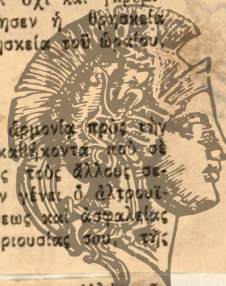 ὄχι καὶ
ησεν ἡ θρησκεία
ησκεία τοῦ ὡραίου,
ἁρμονία πρὸς τὴν
καθήκοντα ποὺ σὲ
ς τοὺς ἄλλους σε-
γένει ὁ ἀλτρουϊ-
εως καὶ ἀσφαλείας
ριουσίας σου, τῆς